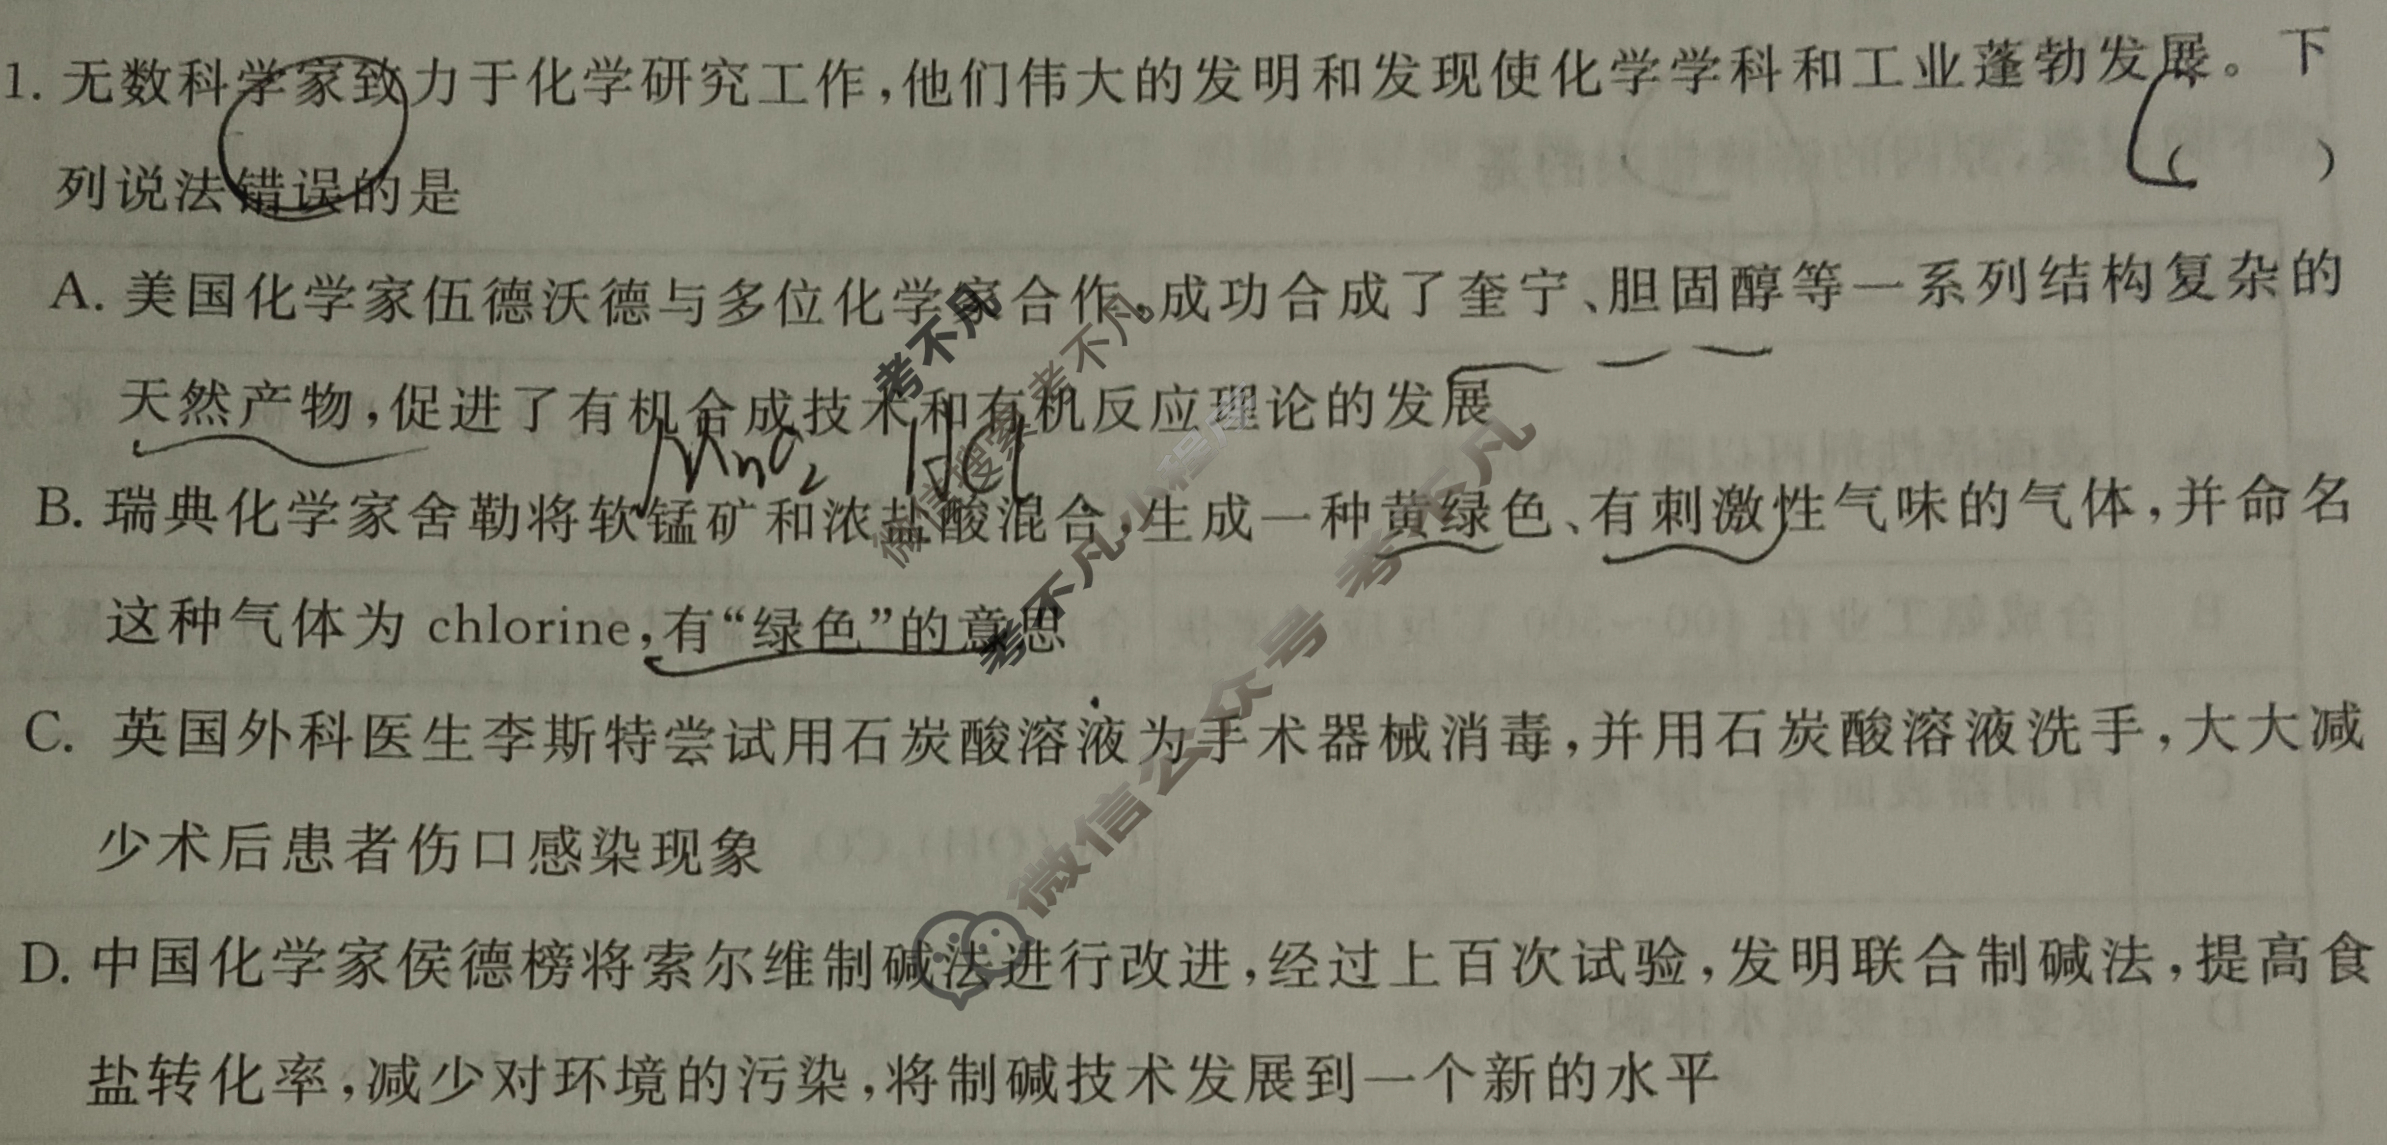 1. 无数科学家致力于化学研究工作,他们伟大的发明和发现使化学学科和工业蓬勃发展。下
列说法错误的是 ( )
A. 美国化学家伍德沃德与多位化学家合作,成功合成了奎宁、胆固醇等一系列结构复杂的
天然产物,促进了有机合成技术和有机反应理论的发展
MnO₂ HCl
B. 瑞典化学家舍勒将软锰矿和浓盐酸混合,生成一种黄绿色、有刺激性气味的气体,并命名
这种气体为 chlorine,有“绿色”的意思
C. 英国外科医生李斯特尝试用石炭酸溶液为手术器械消毒,并用石炭酸溶液洗手,大大减
少术后患者伤口感染现象
D. 中国化学家侯德榜将索尔维制碱法进行改进,经过上百次试验,发明联合制碱法,提高食
盐转化率,减少对环境的污染,将制碱技术发展到一个新的水平
考不凡
微信搜索 考不凡
考不凡 小程序
微信公众号 考不凡